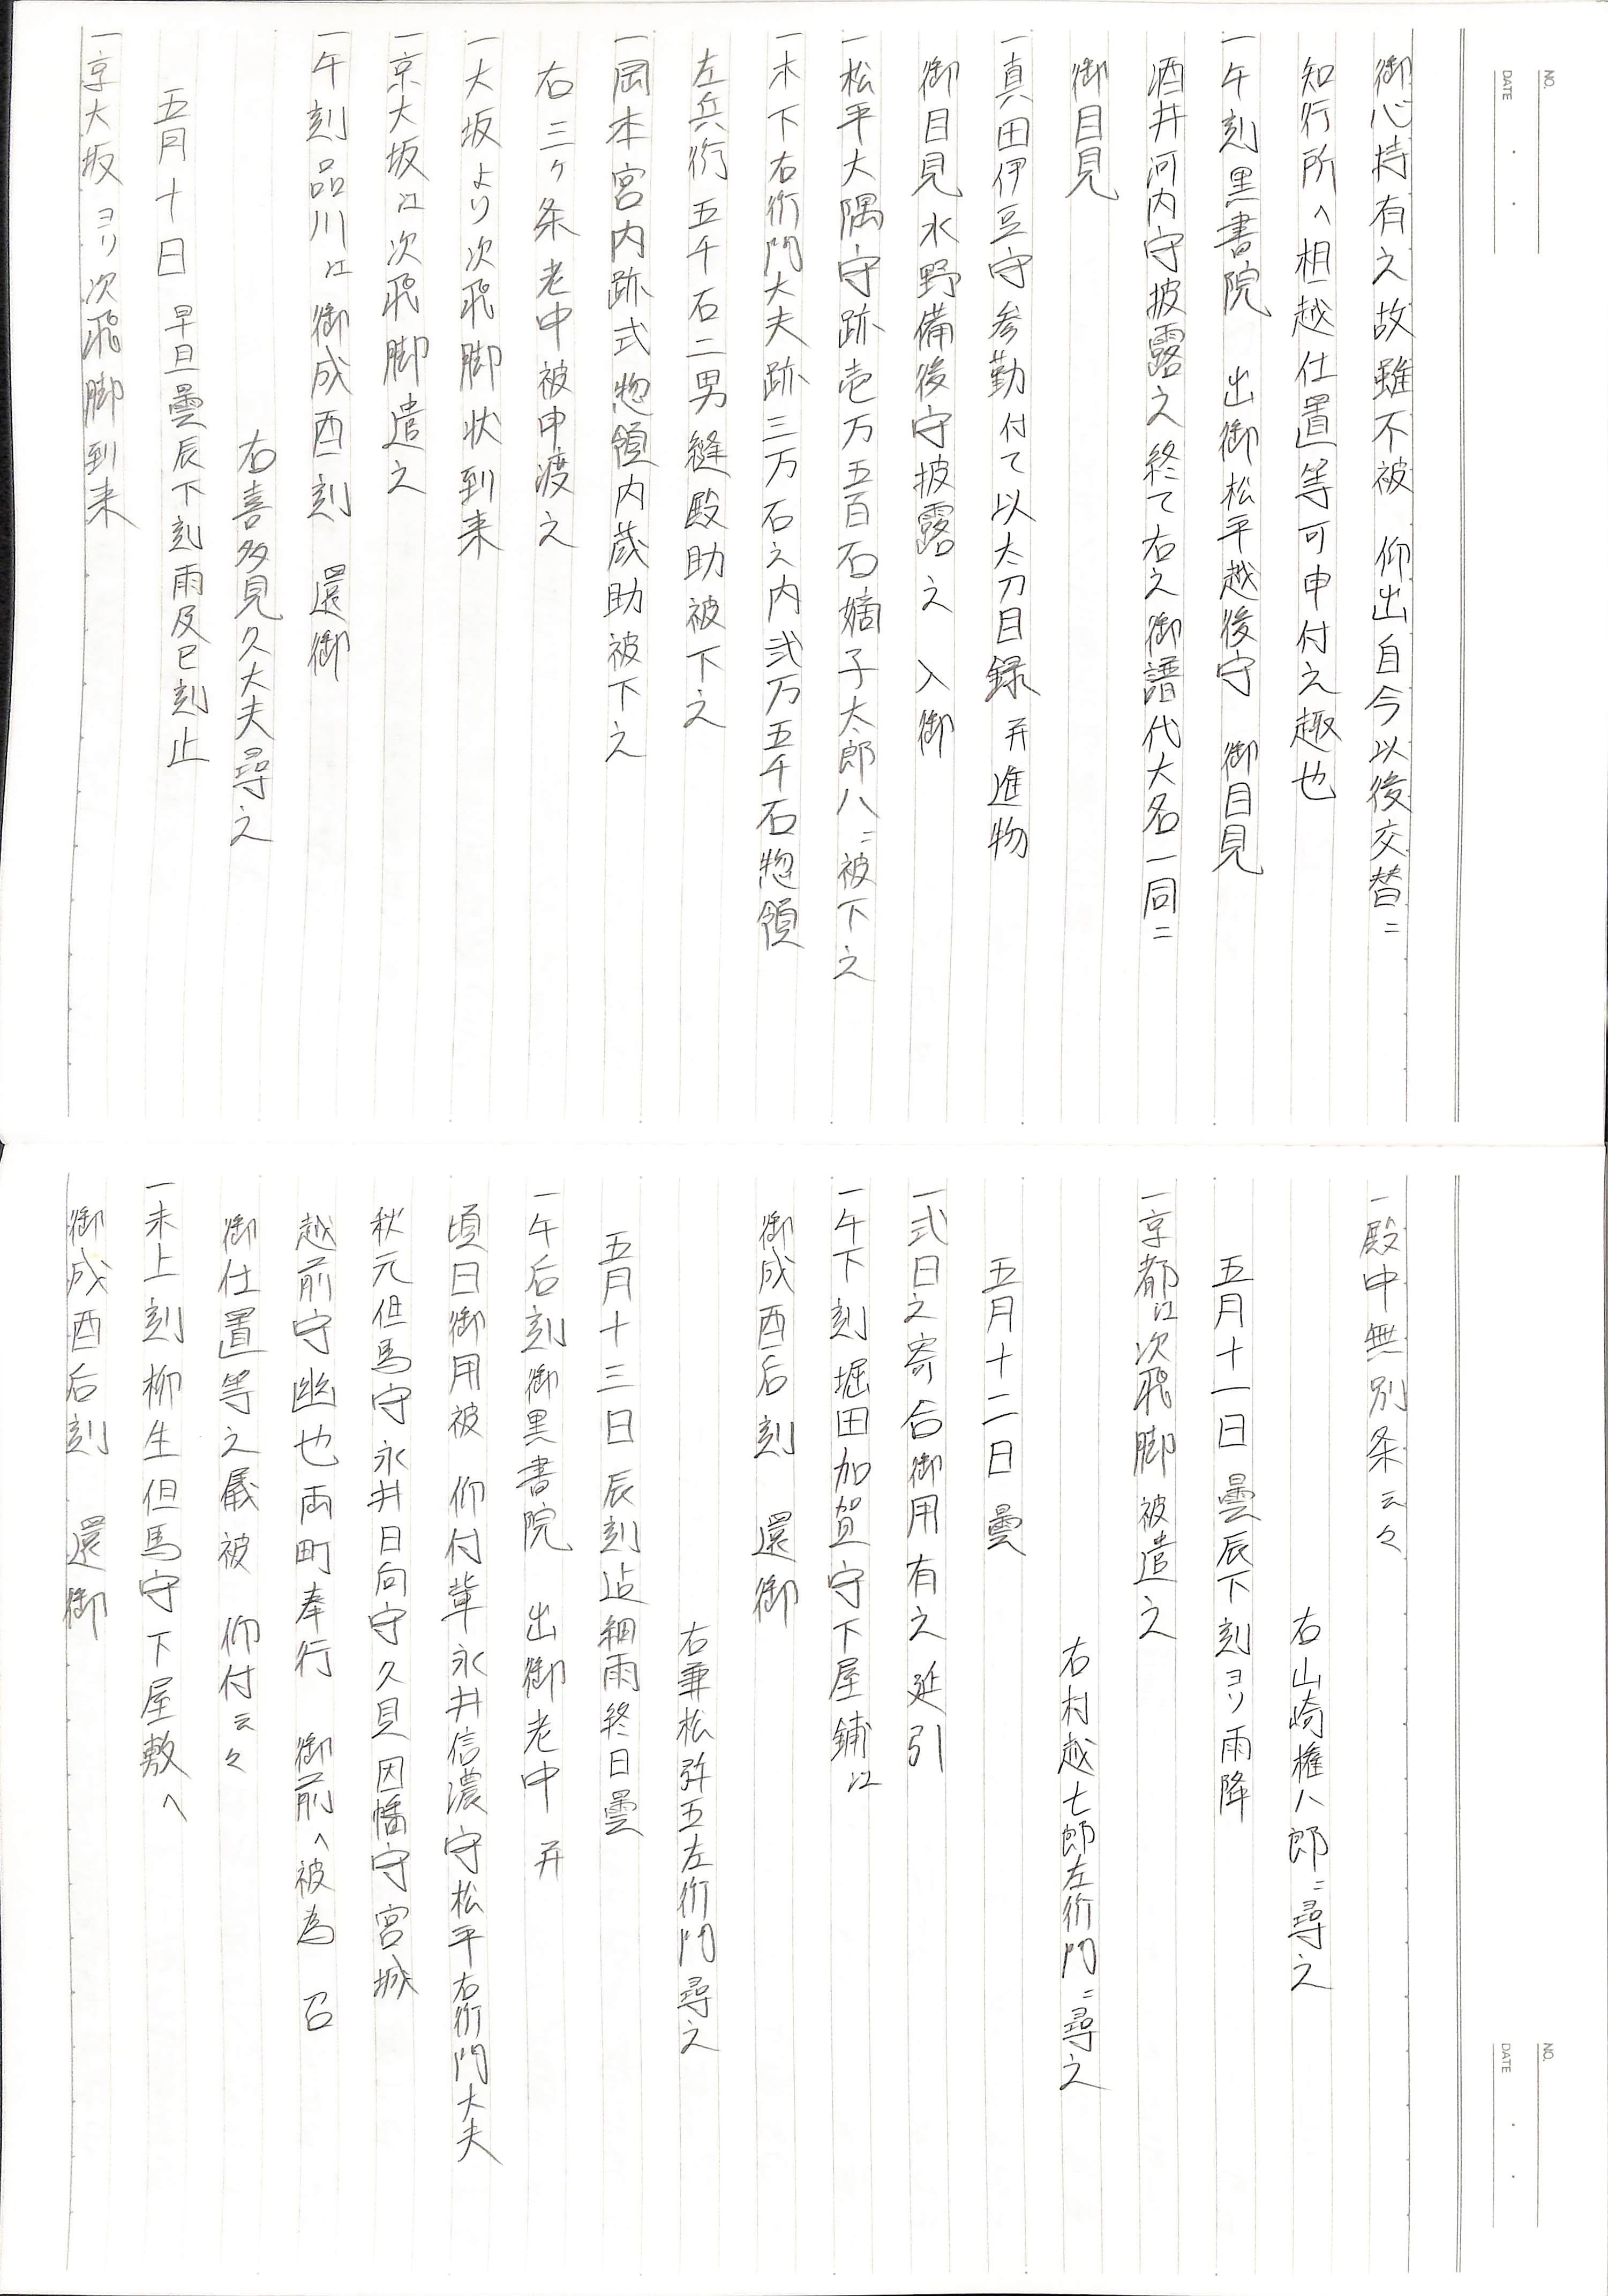 NO.
DATE
御心持有之故雖不被　仰出自今以後交替ニ
知行所へ相越仕置等可申付之趣也
一午刻黒書院　出御松平越後守　御目見
酒井河内守披露之終て右之御譜代大名一同ニ
御目見
一真田伊豆守参勤付て以太刀目録并進物
御目見水野備後守披露之　入御
一松平大隅守跡壱万五百石嫡子太郎八ニ被下之
一木下右衛門大夫跡三万石之内弐万五千石惣領
左兵衛五千石二男縫殿助被下之
一岡本宮内跡式惣領内蔵助被下之
右三ヶ条老中被申渡之
一大坂より次飛脚状到来
一京大坂江次飛脚遣之
一午刻品川江御成酉刻　還御
右喜多見久大夫尋之
五月十日　早旦曇辰下刻雨及巳刻止
一京大坂ヨリ次飛脚到来
NO.
DATE
一殿中無別条云々
右山崎権八郎ニ尋之
五月十一日　曇辰下刻ヨリ雨降
一京都江次飛脚被遣之
右村越七郎左衛門ニ尋之
五月十二日　曇
一式日之寄合御用有之延引
一午下刻堀田加賀守下屋鋪江
御成酉后刻　還御
右兼松弥五左衛門尋之
五月十三日　辰刻迠細雨終日曇
一午后刻御黒書院　出御老中并
頃日御用被　仰付輩永井信濃守松平右衛門大夫
秋元但馬守永井日向守久貝因幡守宮城
越前守幽也両町奉行　御前へ被為　召
御仕置等之儀被　仰付云々
一未上刻柳生但馬守下屋敷へ
御成酉后刻　還御